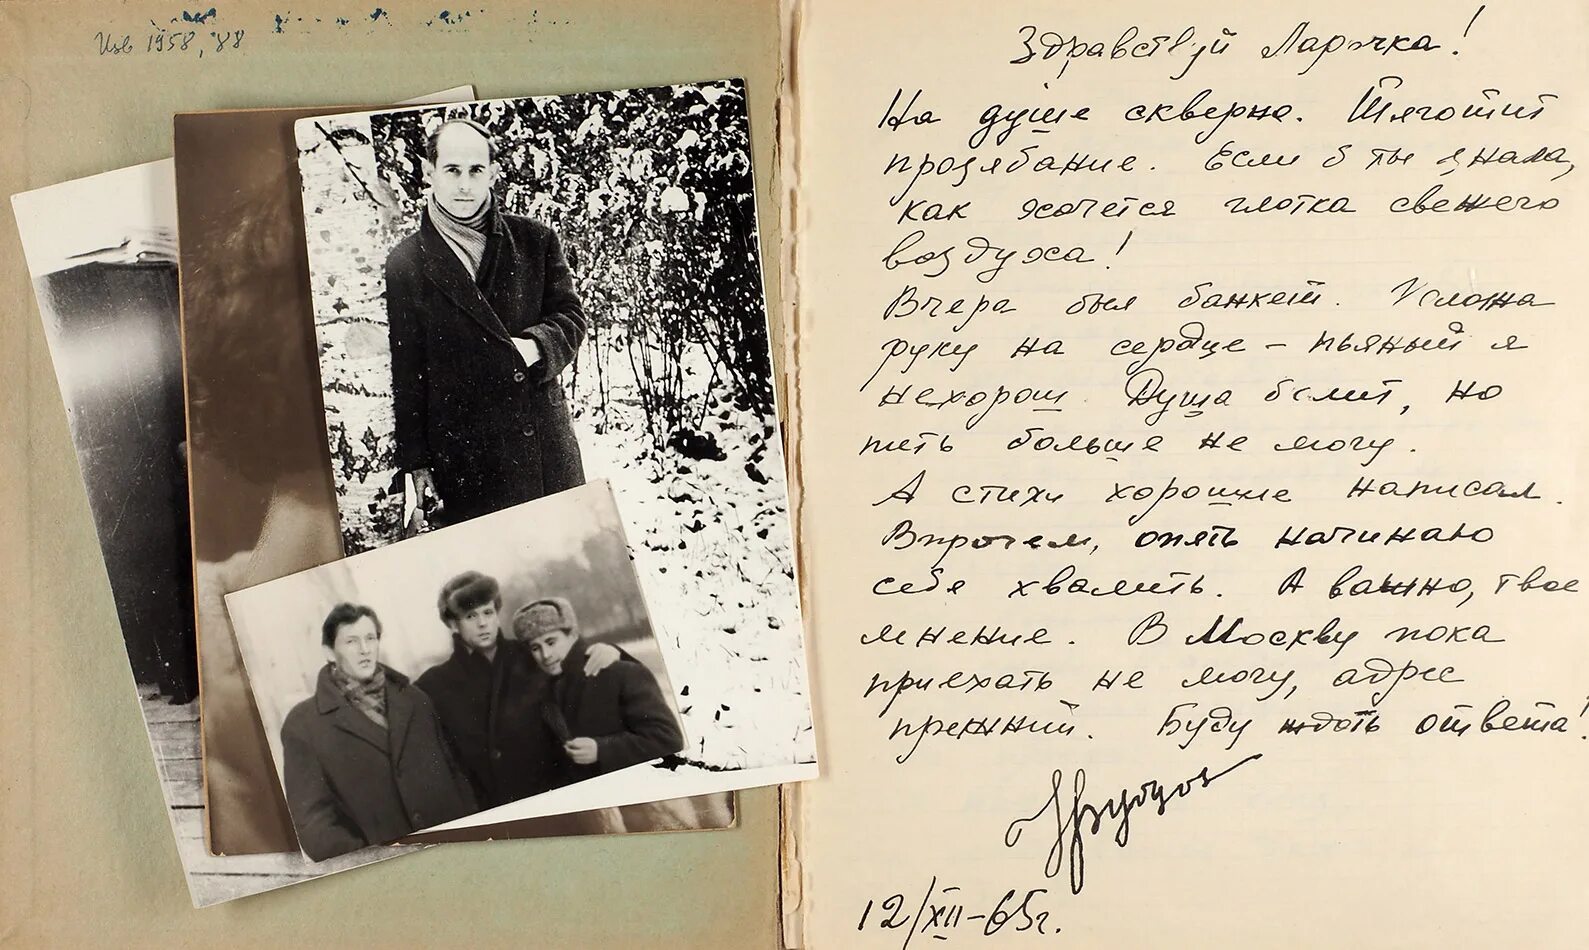 Изв 1958, '88
Здравствуй Ларочка!
На душе скверно. Тяготит
прозябание. Если б ты знала,
как хочется глотка свежего
воздуха!
Вчера был банкет. Положа
руку на сердце – пьяный я
нехорош. Душа болит, но
пить больше не могу.
А стихи хорошие написал.
Впрочем, опять начинаю
себя хвалить. А важно, твое
мнение. В Москву пока
приехать не могу, адрес
прежний. Буду ждать ответа!
12/XII–65г.